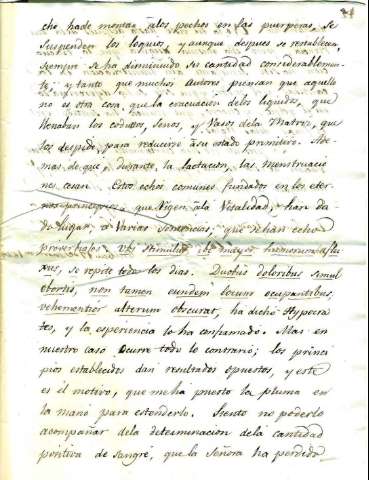 cho ha de montar a los pechos en las puerperas, se
suspenden los loquios, y aunque despues se restablecen,
siempre se ha diminuido su cantidad considerablemen-
te; y tanto que muchos Autores piensan que aquello
no es otra cosa, que la evacuacion delos liquidos, que
llenaban los conductos, senos, y Vasos dela Matriz, que
los despide, para reducirse a su estado primitivo. Ade-
mas de que, durante la lactacion, las menstruacio
nes cesan. Estos echos comunes fundados en los eter-
nos principios, que Rigen a la Vitalidad, han da-
do lugar a Varias sentencias, que se han echo
proverbiales. Ubi stimulus ibi mayor humorum aflu-
xus, se repite todos los dias. Duobus doloribus simul
obortis, non tamen eundem locum ocupantibus,
vehementior alterum obscurat, ha dicho Hypocra-
tes, y la esperiencia lo ha confirmado. Mas en
nuestro caso ocurre todo lo contrario; los princi
pios establecidos dan resultados opuestos, y este
es el motivo, que me ha puesto la pluma en
la mano para estenderlo. Siento no poderlo
acompañar dela determinacion dela cantidad
positiva de sangre, que la Señora ha perdido